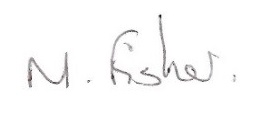 M. Fisher.